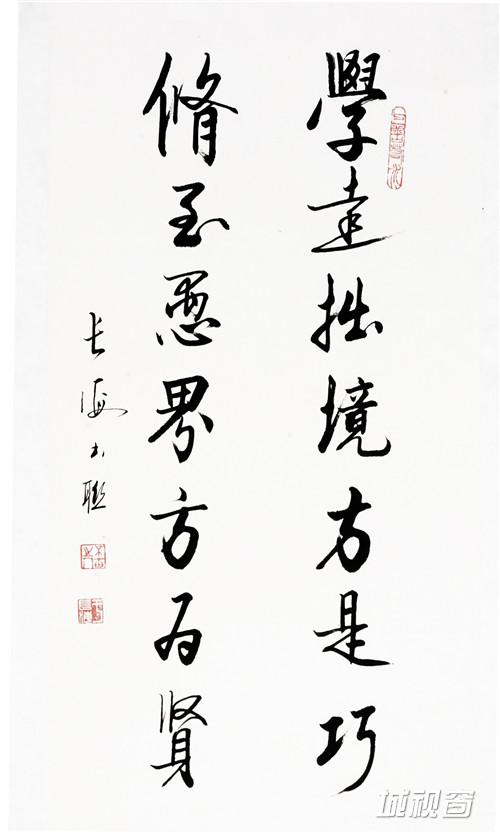 學達拙境方是巧
脩至愚界方为賢
长海书聯
城视窗